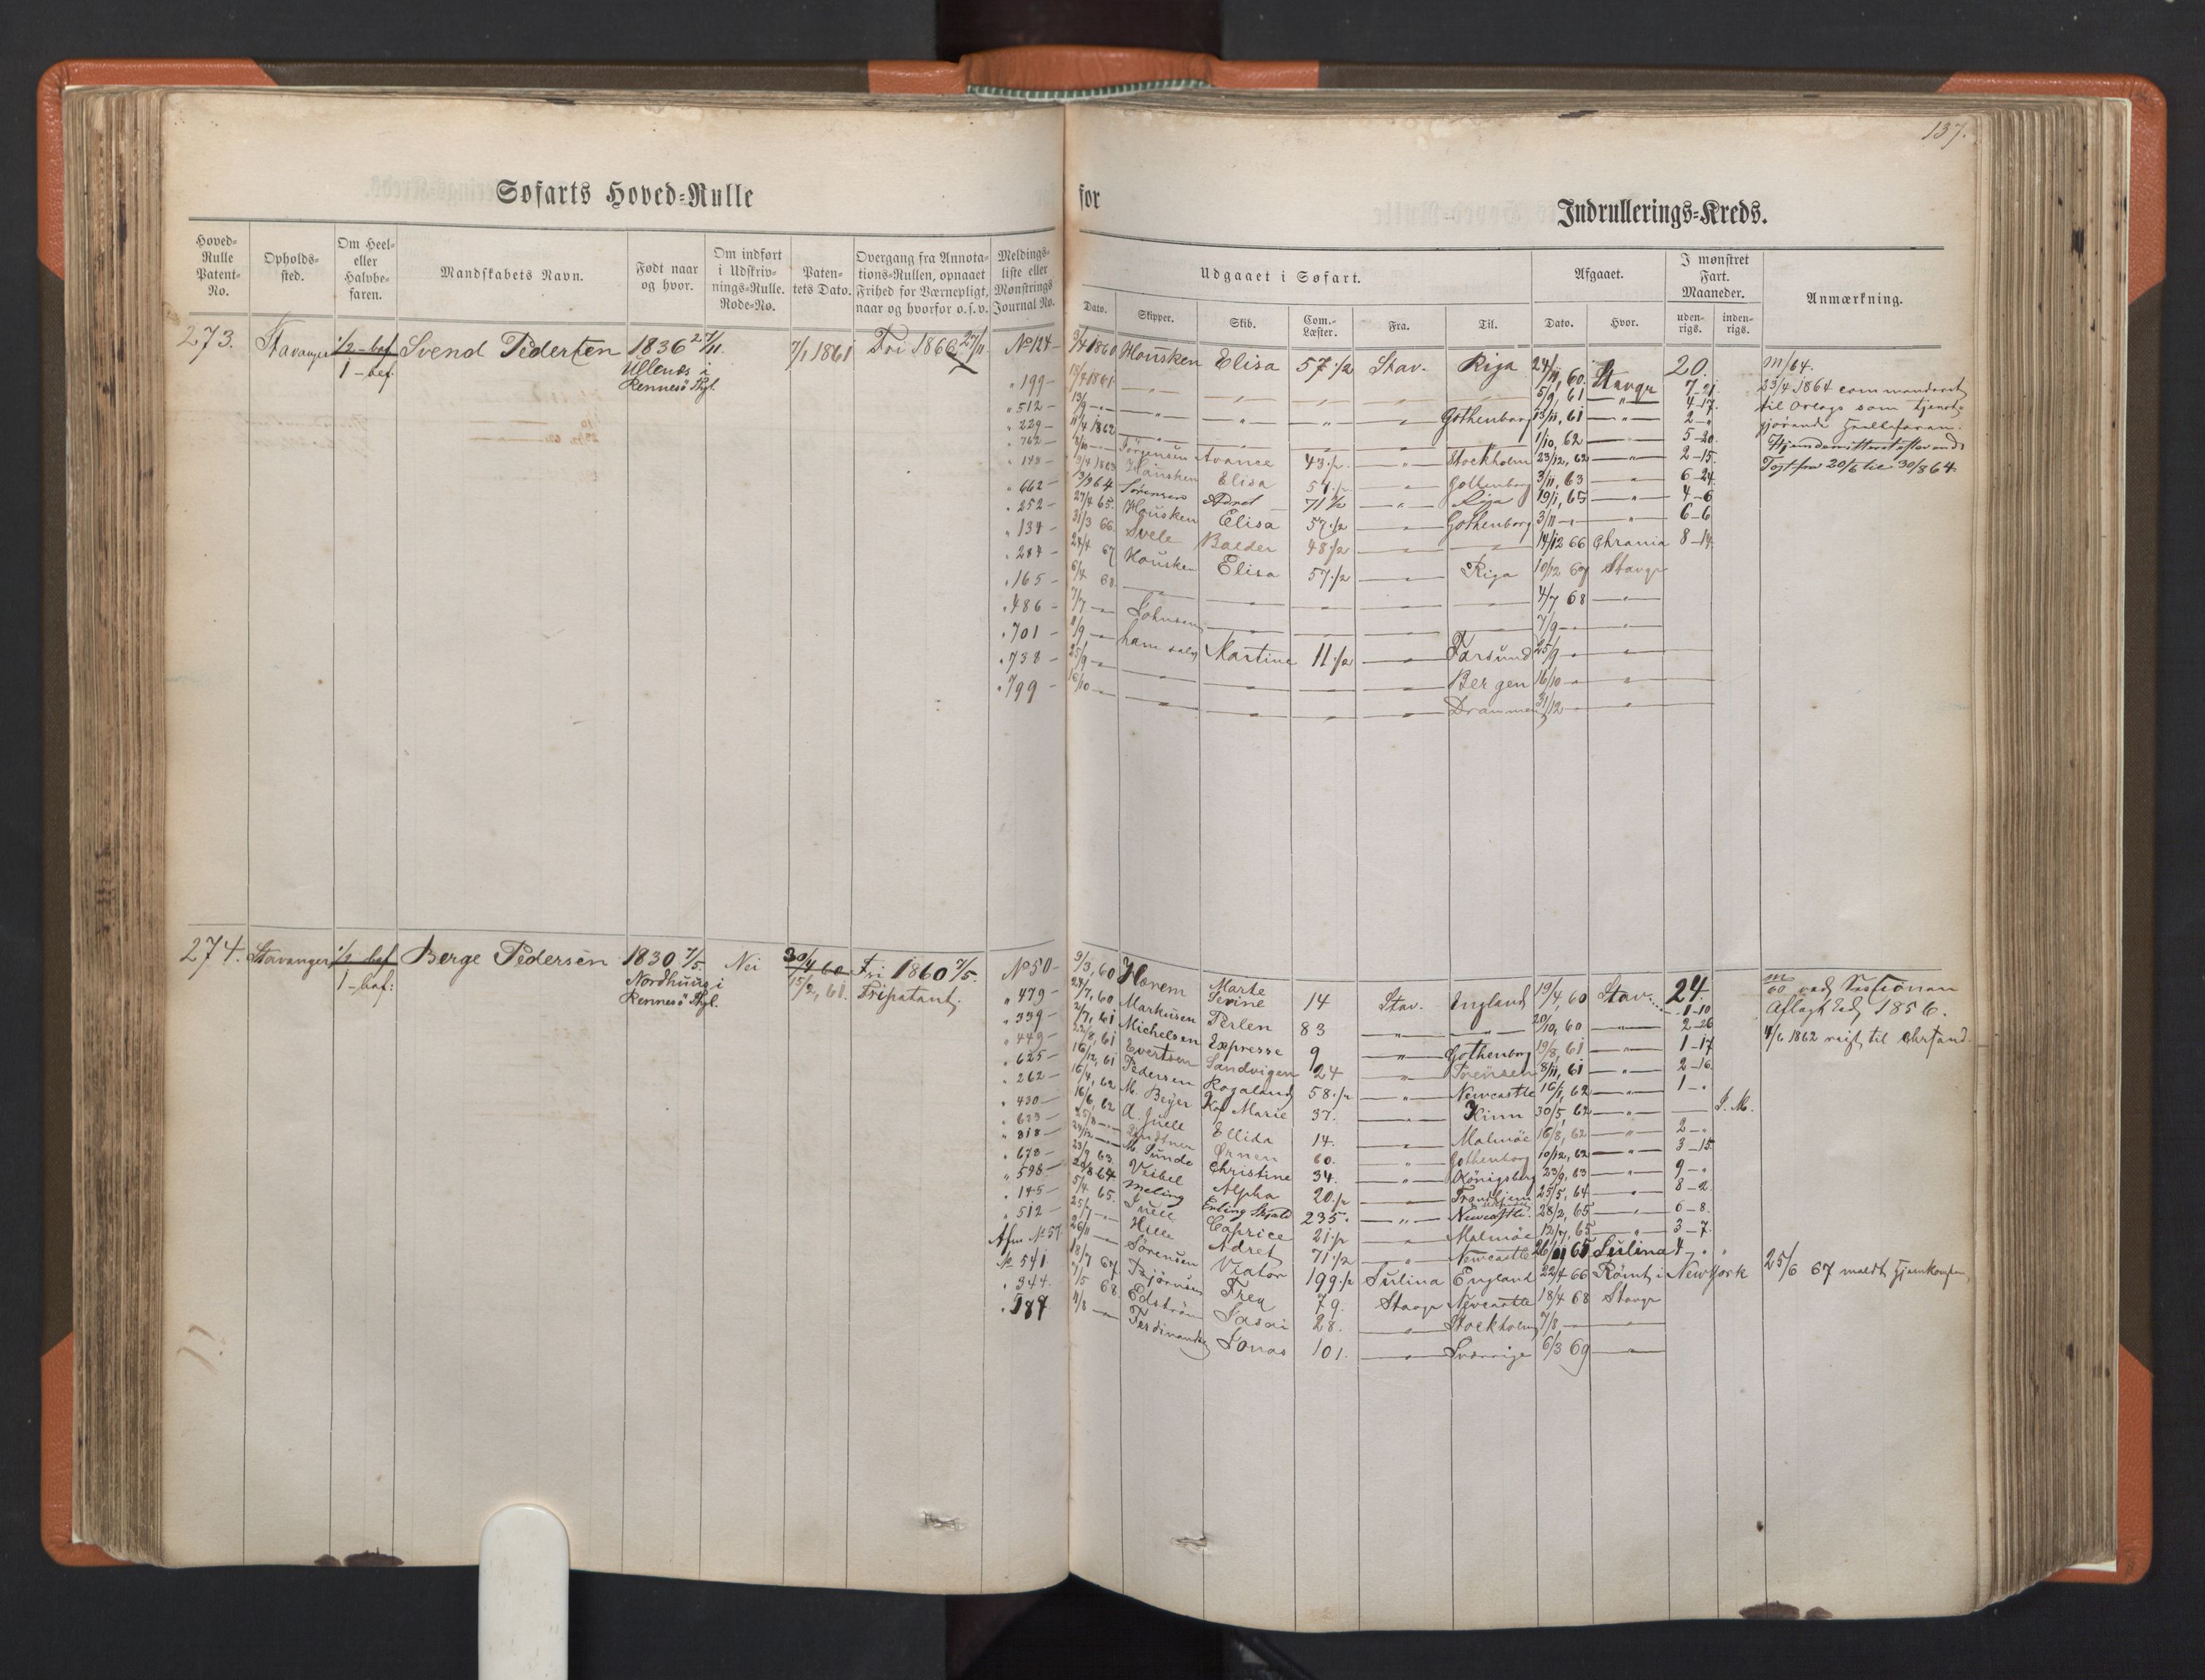 137.
Søfarts Hoved=Rulle for Indrullerings=Kreds.
Hoved=Rulle Patent=No.
Opholds=sted.
Om Heel= eller Halvbe=faren.
Mandskabets Navn.
Født naar og hvor.
Om indført i Udskriv=nings=Rulle. Rode=No.
Paten=tets Dato.
Overgang fra Annota=tions=Rullen, opnaaet Frihed for Værnepligt, naar og hvorfor o.s.v.
Meldings=liste eller Mønstrings Journal No.
Udgaaet i Søfart.
Dato. Skipper. Skib. Com.=Læster. Fra. Til.
Afgaaet.
Dato. Hvor.
I mønstret Fart. Maaneder.
uden=rigs. inden=rigs.
Anmærkning.
273. Stavanger 1/2 - bef. Svend Pedersen 1836 27/11. 7/1 1861 Fri 1866 27/11 No 124 -
1 - bef.
Ullenæs i
Rennesö Thgl.
3/4 1860 Housken Elisa 57 1/2 Stav. Riga 24/11, 60. Stavgr 20.
" 199 - — " — " — " — " — " 5/9, 61 — " — 7-21.
" 512 - — " — " — " — Gothenborg 13/11, 61 — " — 4-17.
" 229 - 11/4 1862 — " — 1/10, 62 — " — 2 - "
" 762 - Jörgensen Avance 43 1/2 — " — Stockholm 23/12, 62 — " — 5-20.
" 148 - 3/4 1863 Housken Elisa 57 1/2 — " — Gothenborg 3/11, 63 — " — 2-15.
" 662 - Sörensen Adret 71 1/2 — " — Riga 19/1, 65 — " — 6-24.
" 252 - 27/4 65. Housken Elisa 57 1/2 — " — Gothenborg 3/11 - " — " — 4-6
" 134 - 31/3 66. Svele Balder 48 1/2 — " — — " — 14/12 66 Chrania 6-6
" 284 - 24/4 67 Housken Elisa 57 1/2 — " — Riga 10/12 67 Stavgr 8-14.
" 165 - 6/4 68. — " — " — " — " — " 4/7 68 — " —
" 486 - 7/7 - " - Johnsen — " — " — " — " 7/9 - " — " —
" 701 - 8/9 - " - Martine 11 1/2 — " — Farsund 25/9 - " — " —
" 738 - 25/9 - " - — " — " — " — " — Bergen 16/10 - " — " —
" 799 - 16/10 - " - — " — " — " — " — Drammen 31/12 — " —
m/64.
23/4 1864 commanderet
til Orlogs som tjenst=
gjörende
Hjemdemitteret efter endt
Togt fra 20/5 til 30/8 64.
274. Stavanger 1/2 bef Berge Pedersen 1830 7/5. Nei 30/4 60 Fri 1860 7/5. No 50 -
1 - bef: Nordhuus i 15/2, 61. Fripatent.
Rennesö Thgl.
9/3, 60 Horem Marte Sevine 14 Stav. England 19/4, 60 Stav. 24.
" 479 - 24/7, 60 Markusen Perlen 83 — " — " — 20/10, 60 — " — 1-10
" 339 - 2/7, 61 Michelsen Expresse 9 — " — Gothenborg 19/8, 61 — " — 2-26
" 449 - 22/8, 61 Evertsen Sandvigen 24 — " — 8/11, 61 — " — 1-17
" 625 - 16/12, 61 Pedersen Rogaland 58 1/2 — " — Newcastle 16/1, 62 — " — 2-16.
" 262 - 16/4, 62 M. Beyer Kap Marie 37. — " — Kinn 30/5, 62 — " — 1 - "
" 430 - 16/6, 62 A. Juell Ellida 14. — " — Malmöe 16/8, 62 — " — J. M.
" 633 - 25/8 - " - Ørnen 60. — " — Gothenborg 10/12, 62 — " — 2 - "
" 818 - 24/12 - " - M. Sunde Christine 34. — " — Königsberg 23/9, 63 — " — 3-15.
" 673 - 23/9, 63. Veibel Alpha 20 1/2 — " — Trondhjem 25/5, 64 — " — 9 - "
" 598 - 20/8 64 Meling Erling Skjalg 235. — " — Newcastle. 28/2, 65 — " — 8-2.
" 145 - 5/4. 65. Juell Caprice 21 1/2 — " — Malmöe 12/7, 65 — " — 6-8.
" 512 - 25/7 - " - Hille Adret 71 1/2 — " — Newcastle 26/11 65 Sulina 3-7.
Afm No 57. 26/11 - " - Sörensen Viator 199 1/2 Sulina England 22/4 66 Römt i New York 4 - "
No 541. 18/7 67. Bjørnsen Freg 79. Stavgr Newcastle 18/4 68 Stavgr
" 344. 7/5 68. Edström 28. — " — Stockholm 7/8 — " —
" 587 4/8 - " - Ferdinandsen Jonas 101. — " — Sverrige 6/3 69 — " —
m/60 ved Sessionen
Aflagt Eed 1856.
4/6 1862 reist til Chrsand
25/6 67 meldt Hjemkommen